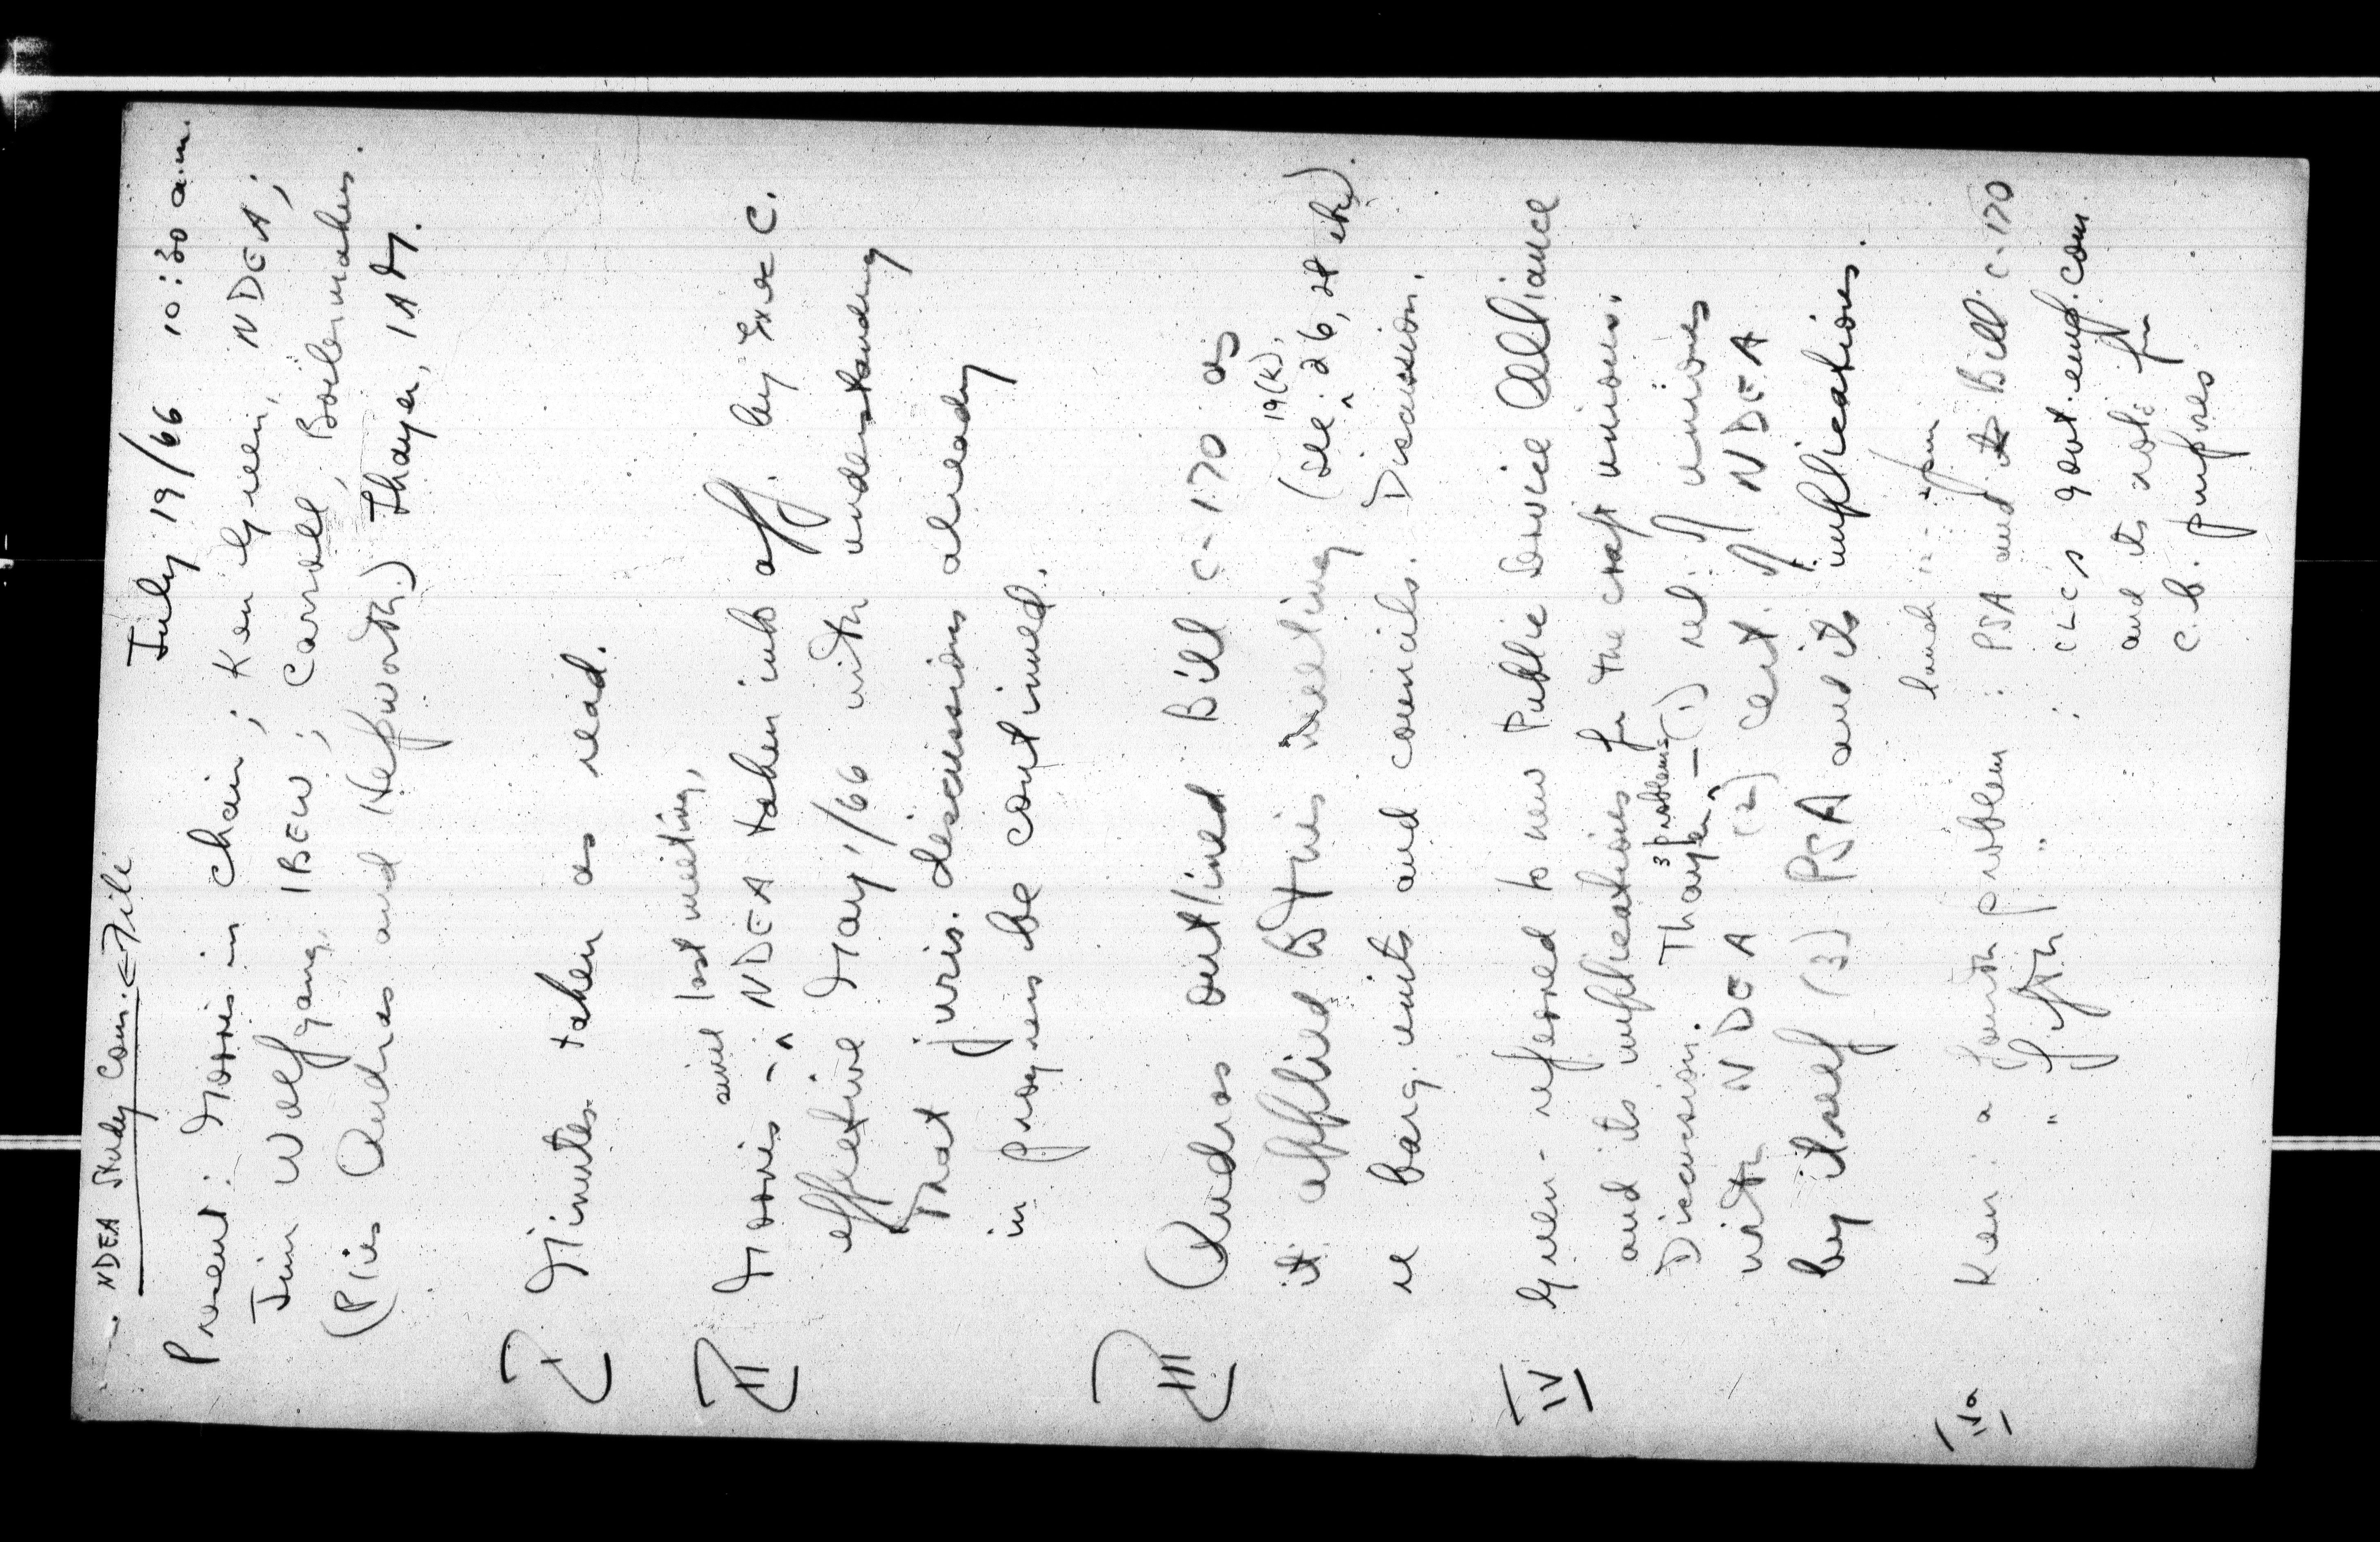 NDEA Study Com. ← File
July 19/66 10:30 a.m.
Present: Morris in chair; Ken Green, NDEA;
Jim Wolfgang, IBEW; Carroll, Boilermakers
(Plus Andras and Hepworth) Thayer, IAM.
I Minutes taken as read.
since last meeting,
II Morris - NDEA taken into aff. by Exec C.
effective May 1/66 with understanding
that juris. discussions already
in progress be continued.
III Andras outlined Bill C-170 as
19(k),
it applied to this meeting (see 26, 28 etc).
re barg. units and councils. Discussion.
IV Green - referred to new Public Service Alliance
and its implications for the craft unions.
3 problems
Discussion. Thayer - (1) rel. of unions
with NDEA (2) cert. of NDEA
by itself (3) PSA and its implications.
IVa Ken: a fourth problem: PSA and Bill C-170
" fifth " : CLC's govt. emp. com.
and its role for
C.B. purposes